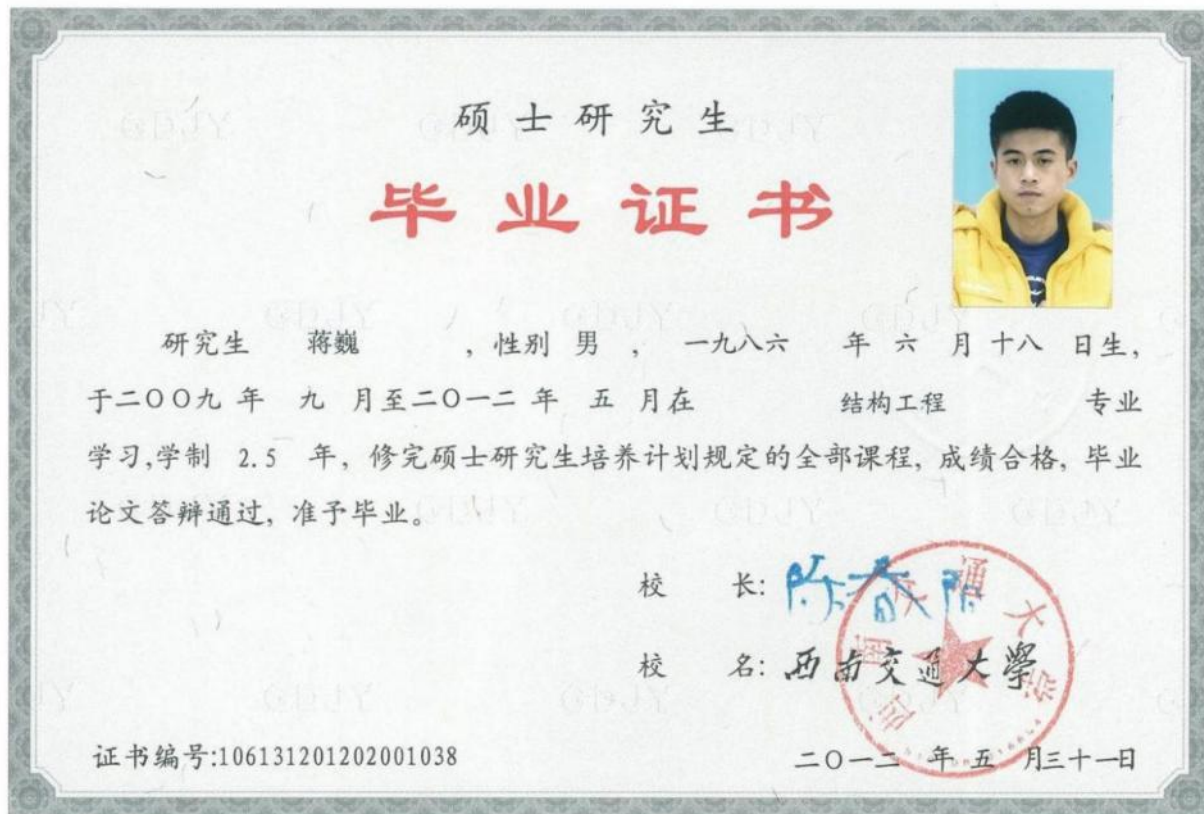 硕士研究生
毕业证书
研究生 蒋巍 , 性别 男 , 一九八六 年 六 月 十八 日生,
于二〇〇九 年 九 月至二〇一二 年 五 月在 结构工程 专业
学习,学制 2.5 年, 修完硕士研究生培养计划规定的全部课程, 成绩合格, 毕业
论文答辩通过, 准予毕业。
校 长: 陈春阳
校 名: 西南交通大學
西南交通大学
证书编号:106131201202001038
二〇一二 年 五 月三十一日